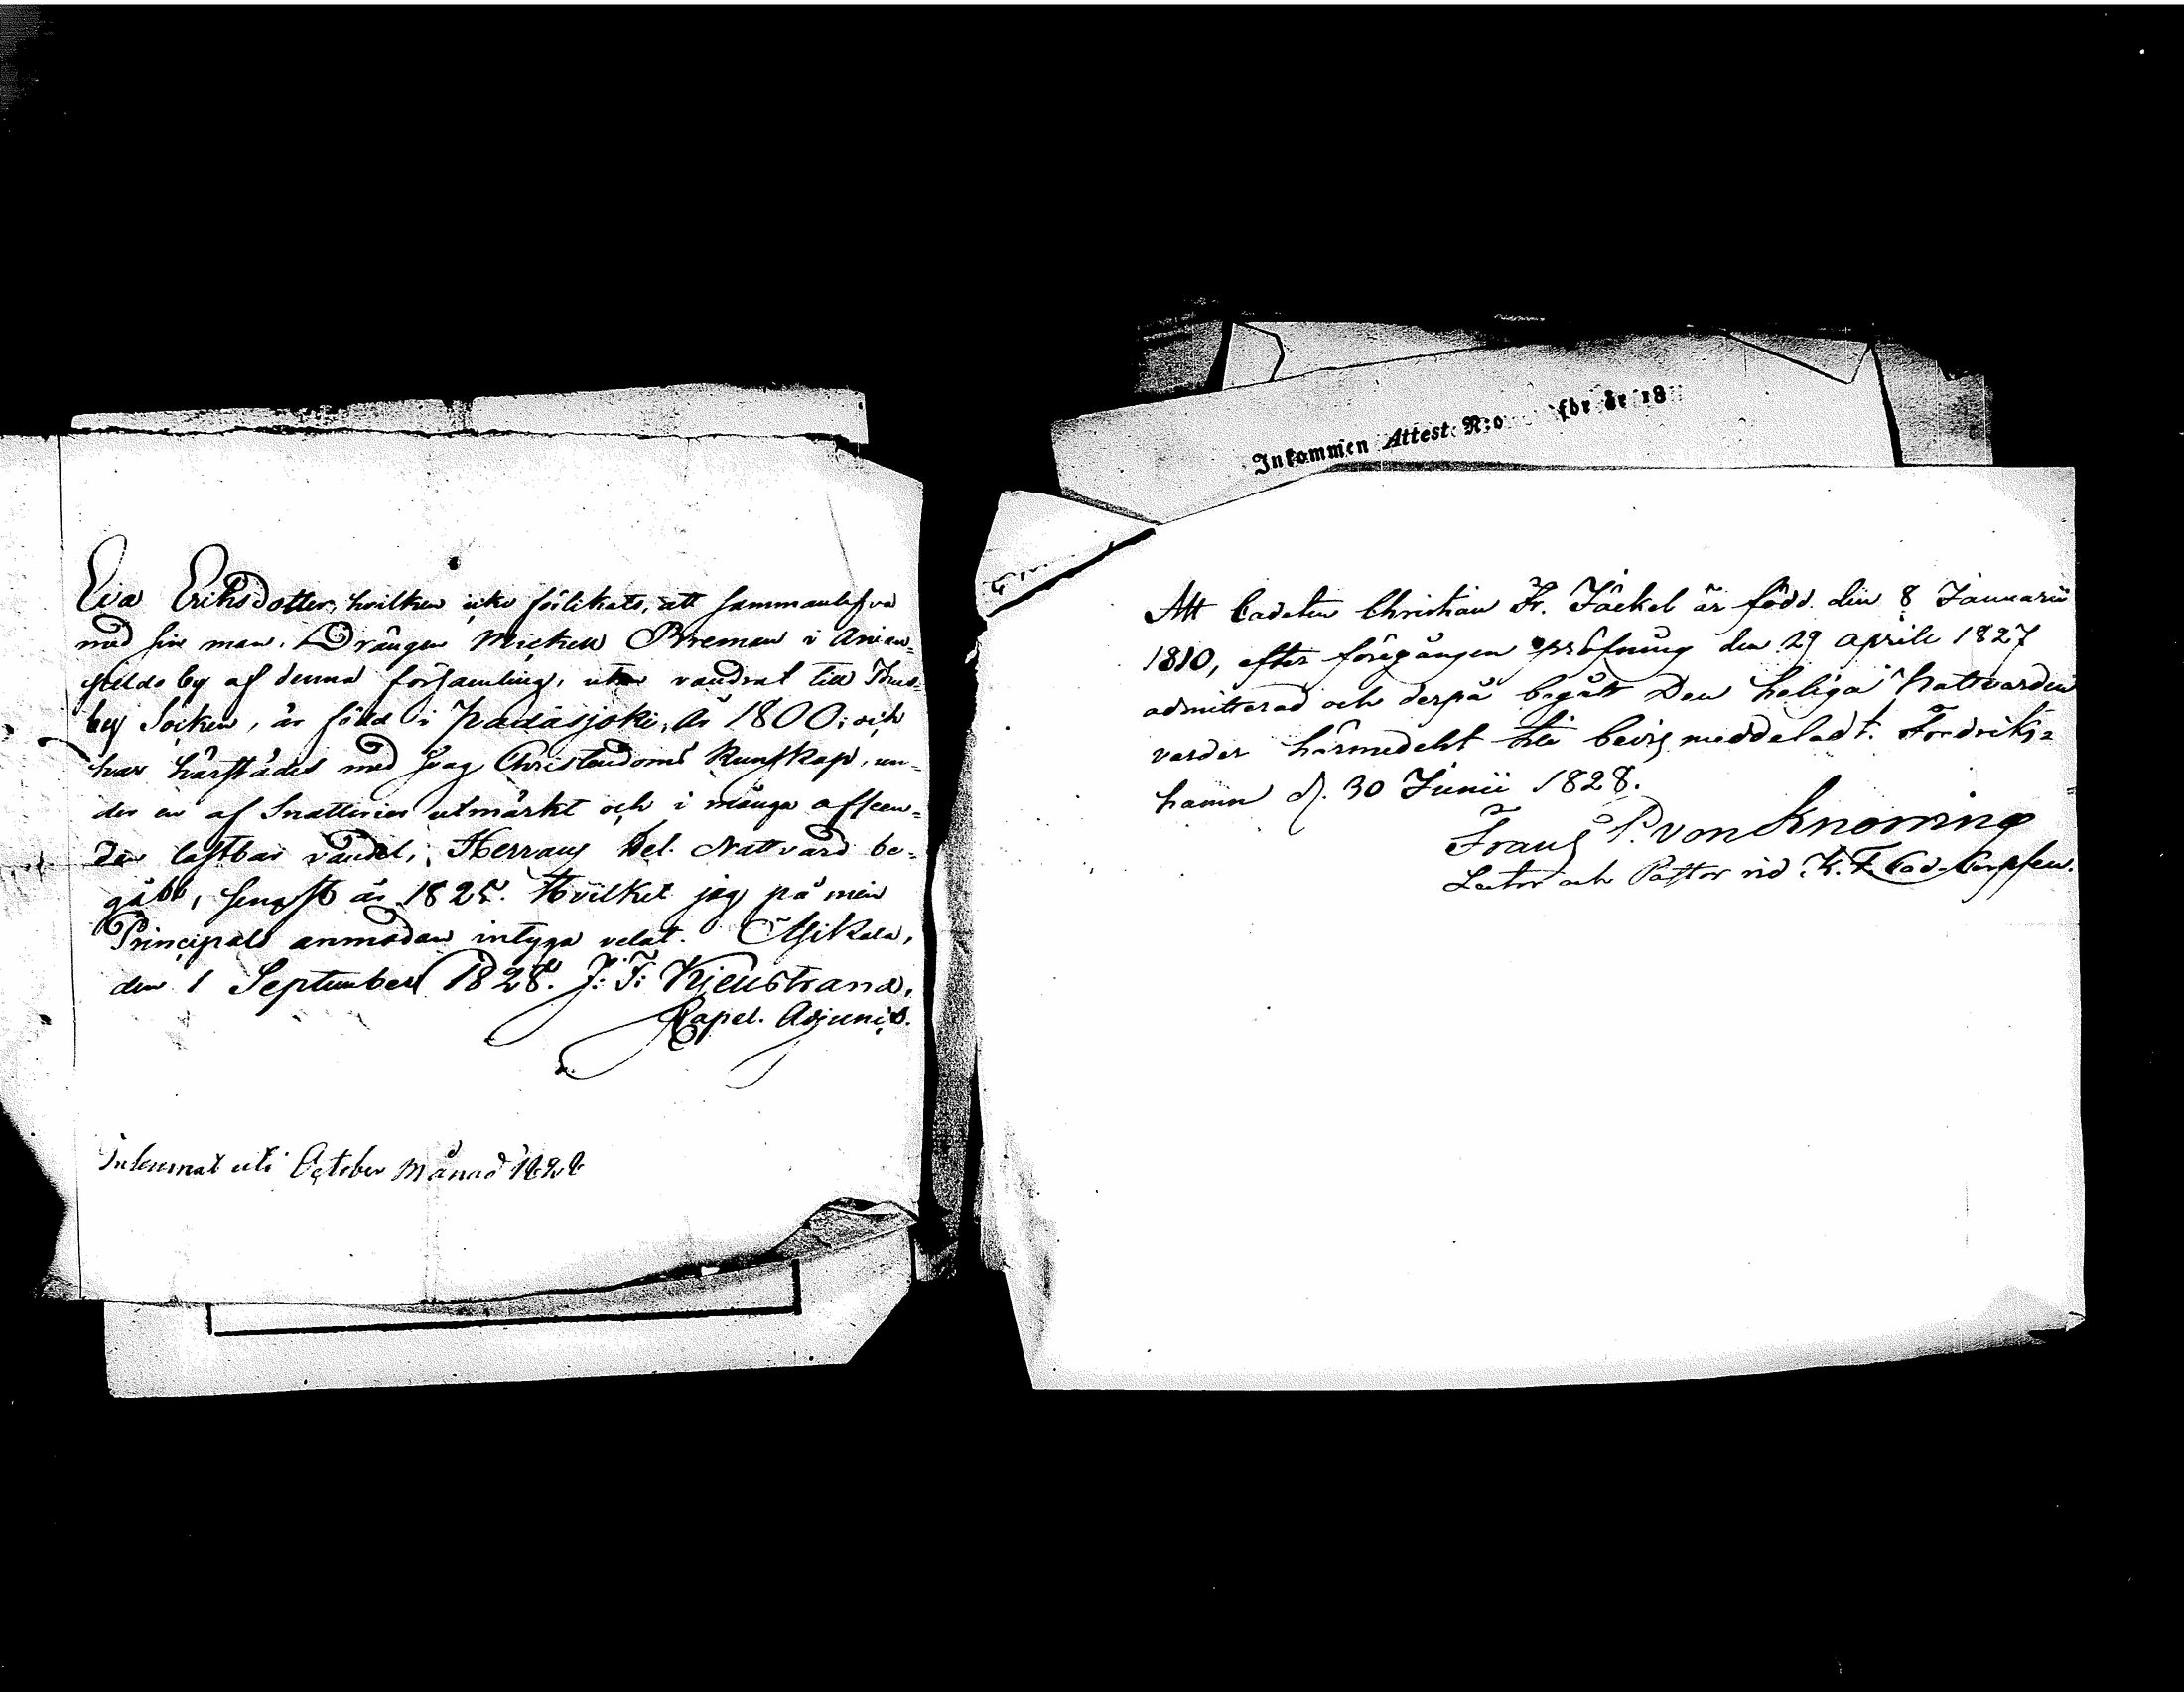 Eva Eriksdotter, hvilken icke förlikats, att sammanlefva
med sin man, Drängen Mickell Breman i Anian-
peldo by af denna församling, utan vandrat till Thus-
by Socken, är född i Padasjoki, År 1800; och
har härstädes med svag Christendoms kunskap, un-
der en af Snatterier utmärkt och i många afseen-
der lastbar vandel, Herrans Hel. Nattvard be-
gått, senast år 1825. Hvilket jag på min
Principals anmodan intyga velat. Asikala,
den 1 September 1828. J: F: Kjellstrand,
Kapel. Adjunct.
Inlemnat uti October Månad 1828
Inkommen Attest N:o för år 18
Att Cadeten Christian Fr. Jäckel är född den 8 Januarii
1810, efter föregången pröfning den 29 Aprill 1827
admitterad och derpå begått Den heliga Nattvarden
varder härmedelst till bevis meddeladt. Fredriks-
hamn d. 30 Junii 1828.
Frans P. von Knorring
Lector och Pastor vid K. F. Cad. Corpsen.